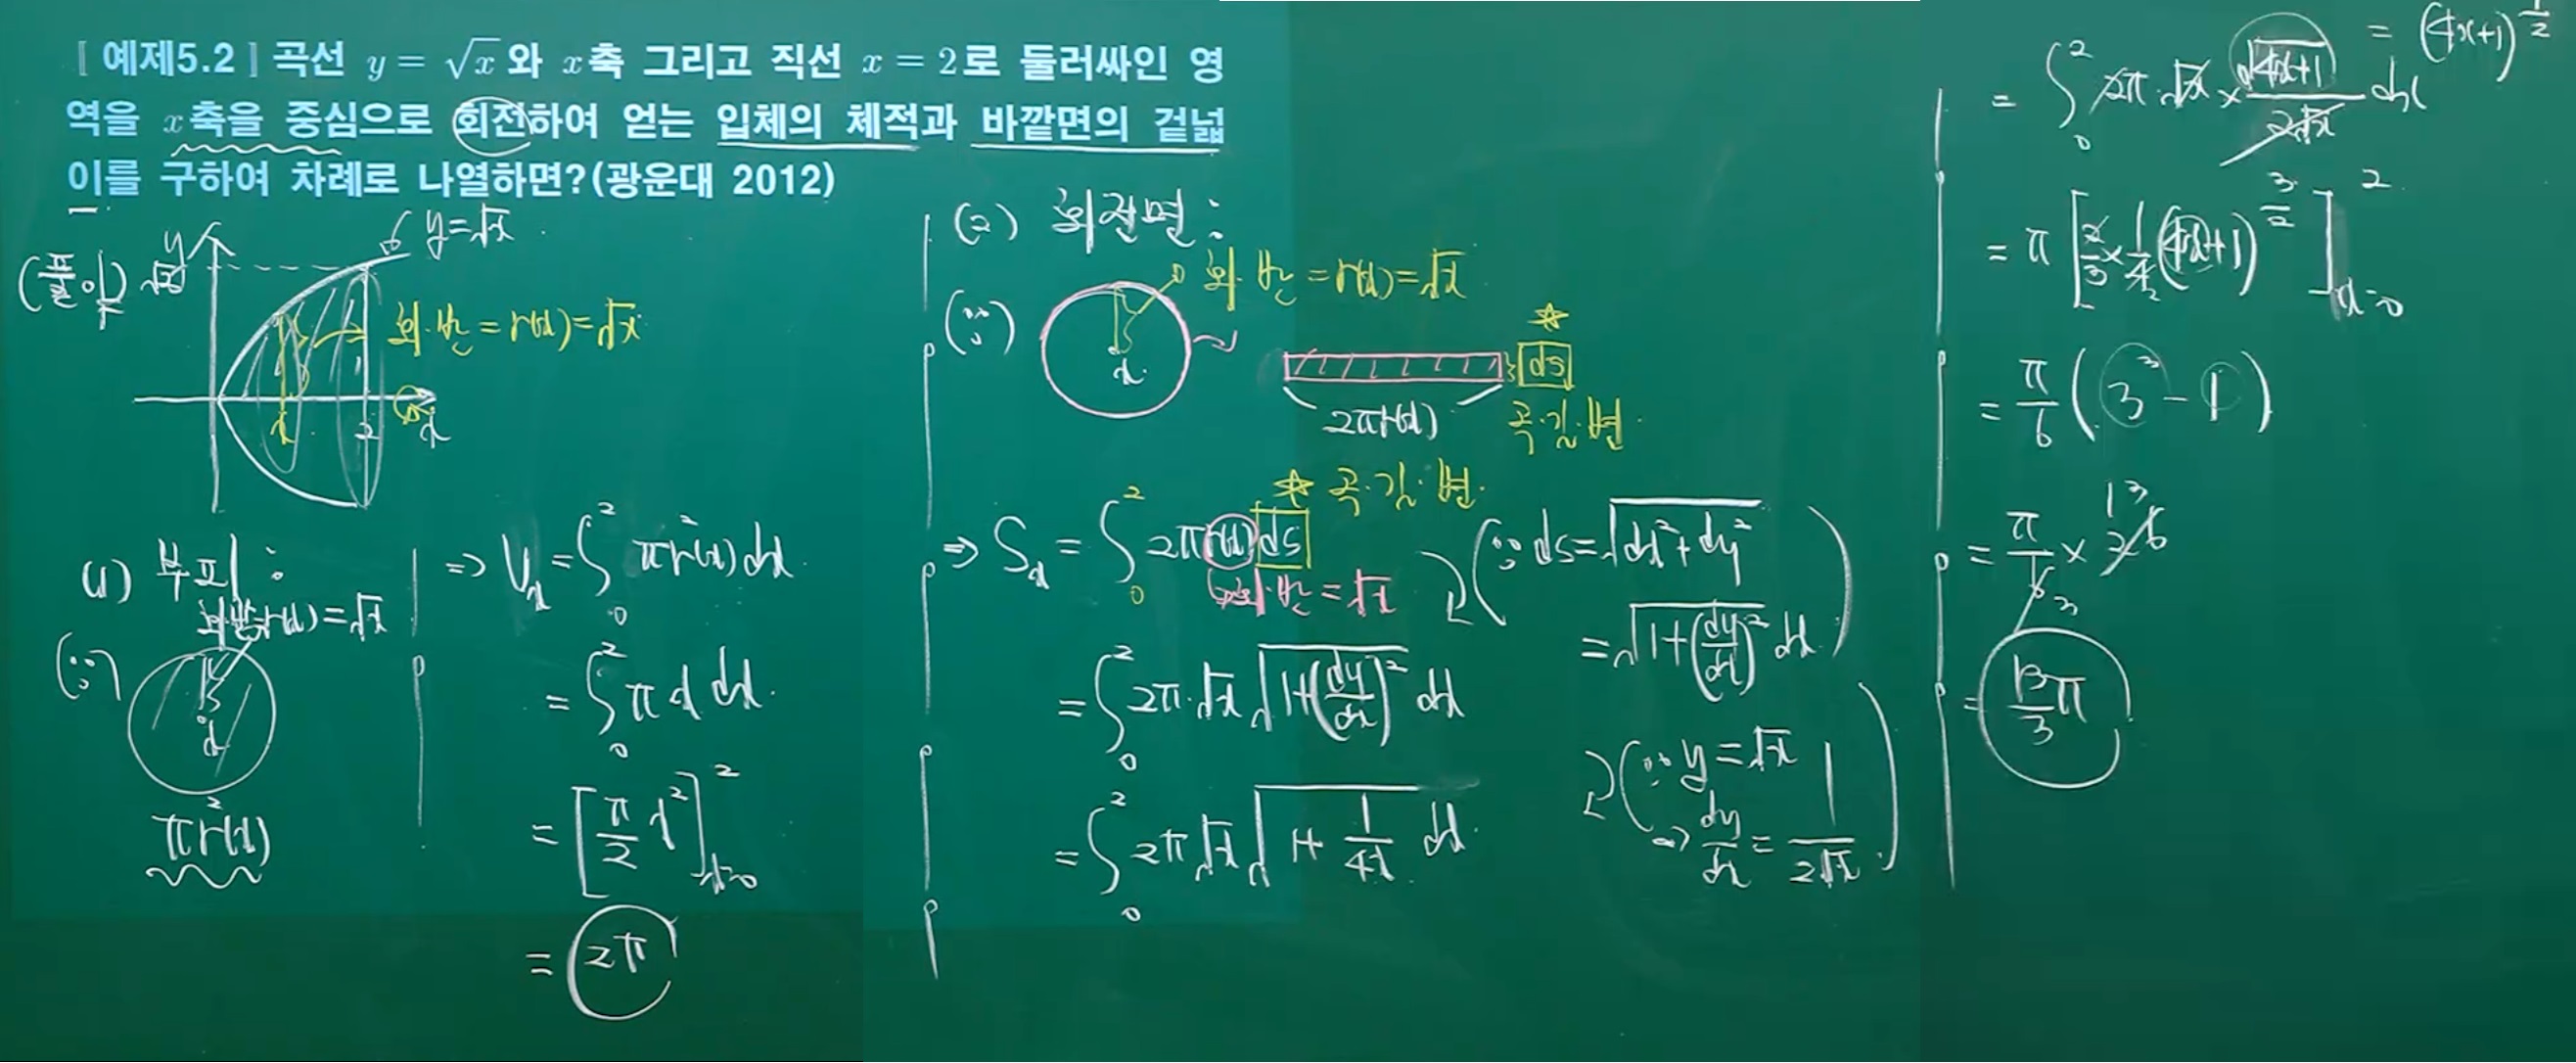 [ 예제5.2 ] 곡선 y = √x 와 x축 그리고 직선 x = 2로 둘러싸인 영
역을 x축을 중심으로 회전하여 얻는 입체의 체적과 바깥면의 겉넓
이를 구하여 차례로 나열하면?(광운대 2012)
(풀이)
y
√x
y=√x
회·반 = r(x) = √x
x
2
x
(1) 부피 :
회·반 = r(x) = √x
(∵)
x
πr²(x)
⇒ Vₓ = ∫₀² πr²(x) dx
= ∫₀² π x dx
= [π/2 x²]²ₓ₌₀
= 2π
(2) 회전면 :
(∵)
회·반 = r(x) = √x
x
☆
ds
2πr(x)
곡·길·변
☆ 곡·길·변
⇒ Sₓ = ∫₀² 2πr(x) ds
회·반 = √x
(∵ ds = √(dx² + dy²)
= √(1+(dy/dx)²) dx)
= ∫₀² 2π·√x √(1+(dy/dx)²) dx
(∵ y = √x
⇒ dy/dx = 1/(2√x))
= ∫₀² 2π √x √(1 + 1/(4x)) dx
= ∫₀² 2π·√x × √(4x+1)/(2√x) dx
= (4x+1)^(1/2)
= π [2/3 × 1/4 (4x+1)^(3/2)]²ₓ₌₀
= π/6 (3³ − 1)
= π/6 × 26
13
3
= 13/3 π